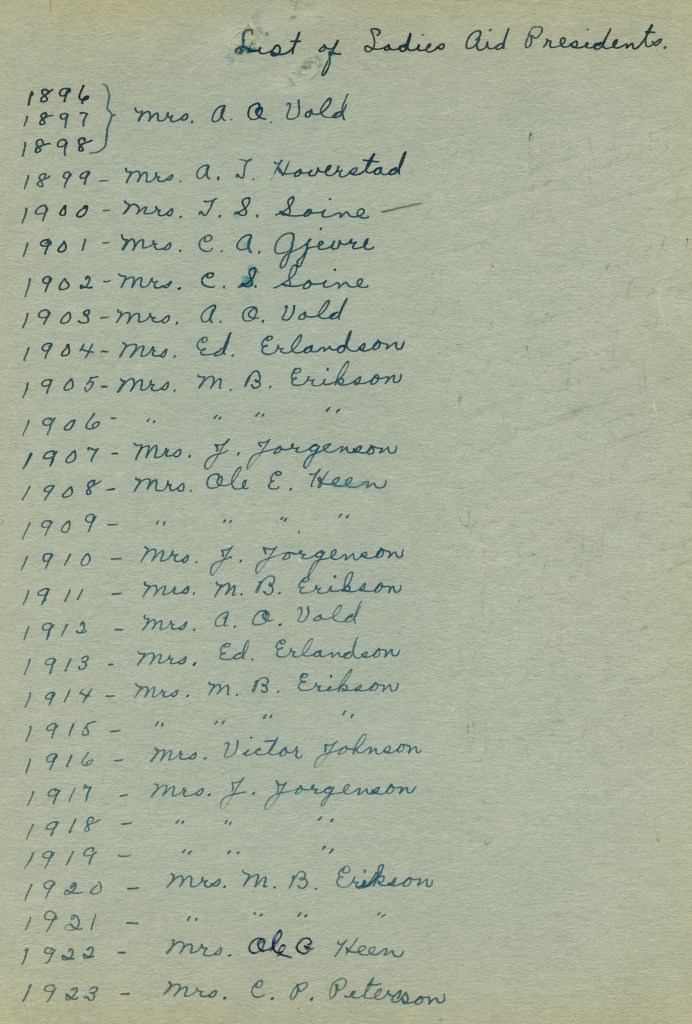 List of Ladies Aid Presidents.
1896
1897 } Mrs. A. O. Vold
1898
1899 - Mrs. A. T. Hoverstad
1900 - Mrs. T. S. Soine —
1901 - Mrs. C. A. Gjevre
1902 - Mrs. C. S. Soine
1903 - Mrs. A. O. Vold
1904 - Mrs. Ed. Erlandson
1905 - Mrs. M. B. Erikson
1906 - " " " "
1907 - Mrs. J. Jorgenson
1908 - Mrs. Ole E. Heen
1909 - " " " "
1910 - Mrs. J. Jorgenson
1911 - Mrs. M. B. Erikson
1912 - Mrs. A. O. Vold
1913 - Mrs. Ed. Erlandson
1914 - Mrs. M. B. Erikson
1915 - " " " "
1916 - Mrs. Victor Johnson
1917 - Mrs. J. Jorgenson
1918 - " " "
1919 - " " "
1920 - Mrs. M. B. Erikson
1921 - " " " "
1922 - Mrs. Ole Heen
1923 - Mrs. C. P. Peterson